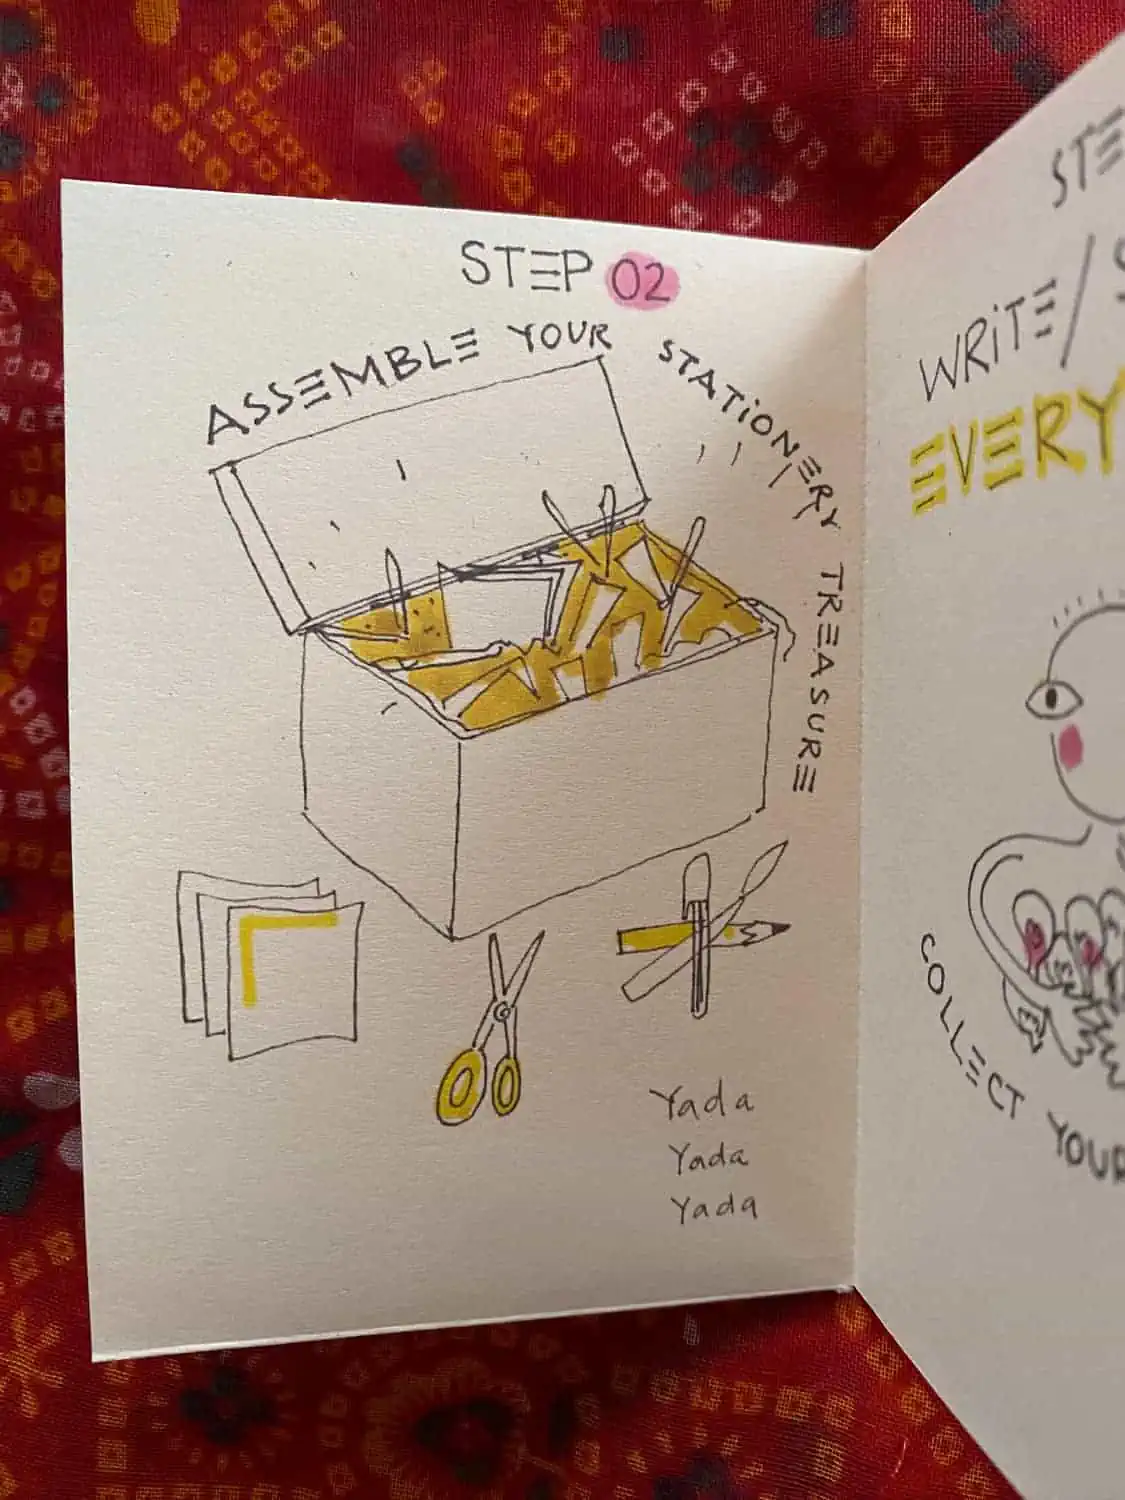 STEP 02
ASSEMBLE YOUR STATIONERY TREASURE
Yada
Yada
Yada
WRITE/
EVERY
COLLECT YOUR